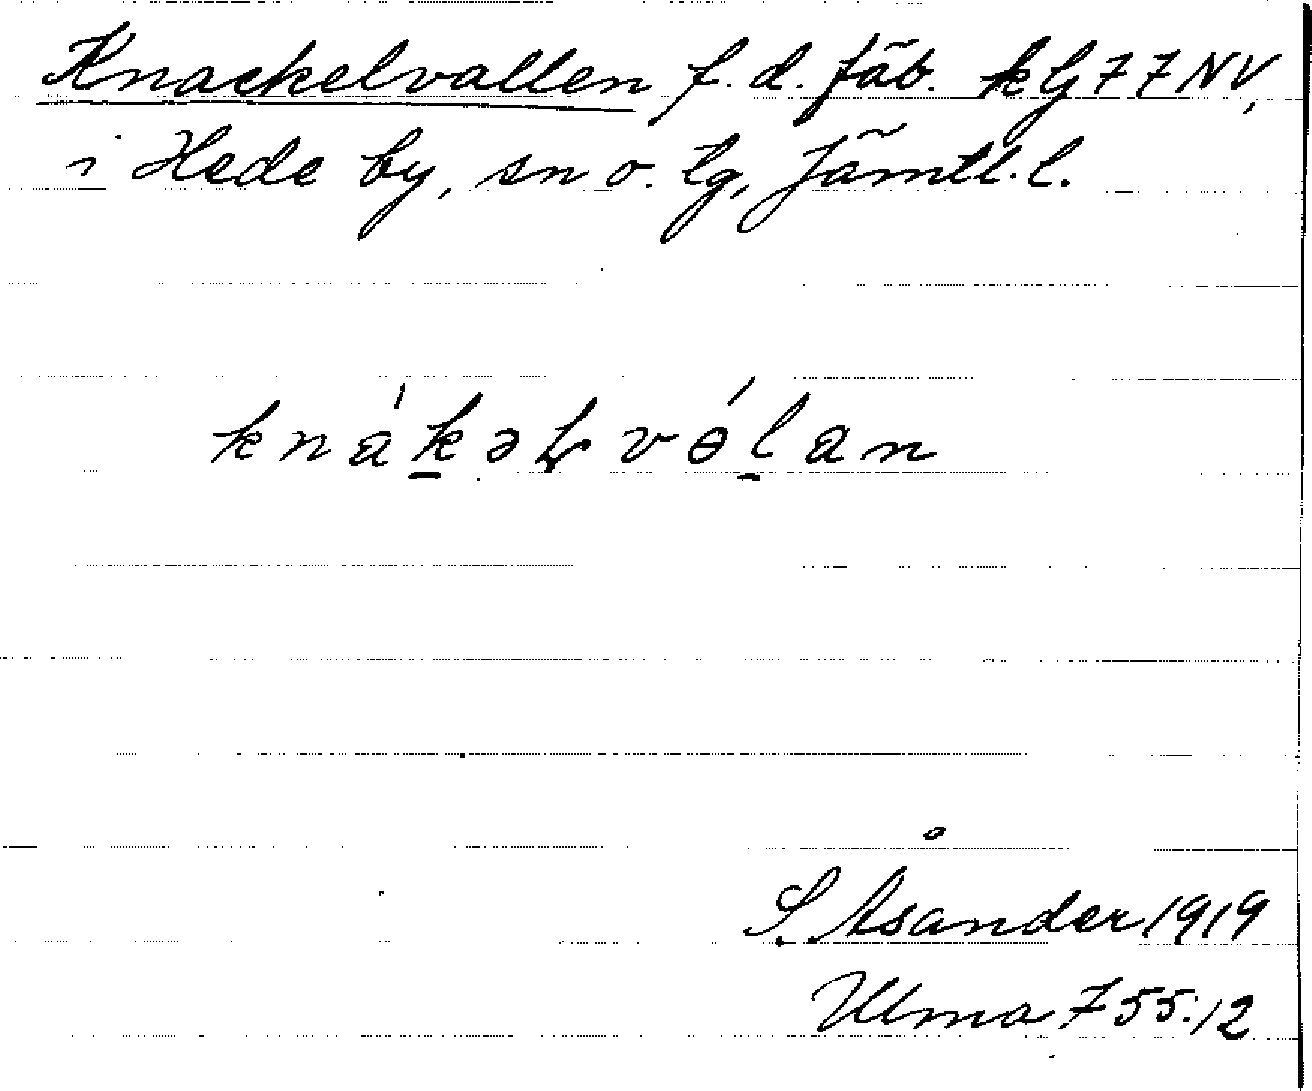 Knackelvallen f.d. fäb. kbl 77 NV,
i Hede by, sn o. tg, Jämtl. l.
knákəɽ vólan
S. Åsander 1919
Ulma 755:12